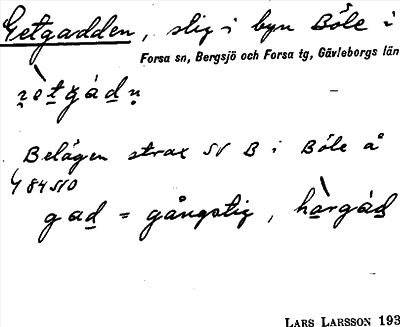 Getgadden, stig i byn Böle i
Forsa sn, Bergsjö och Forsa tg, Gävleborgs län
Belägen strax SV B i Böle å
484 SV0
gad = gångstig, hàrgád
LARS LARSSON 193